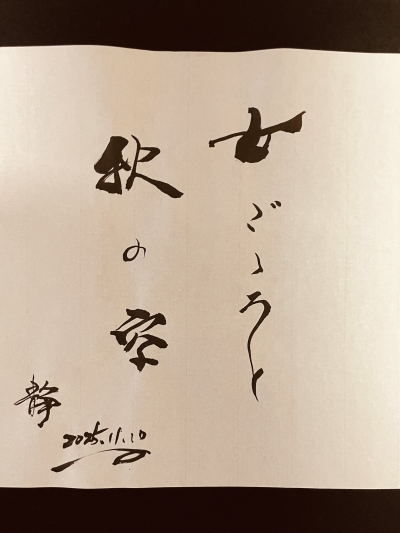 女ごゝろと
秋の空
静
2025.11.10